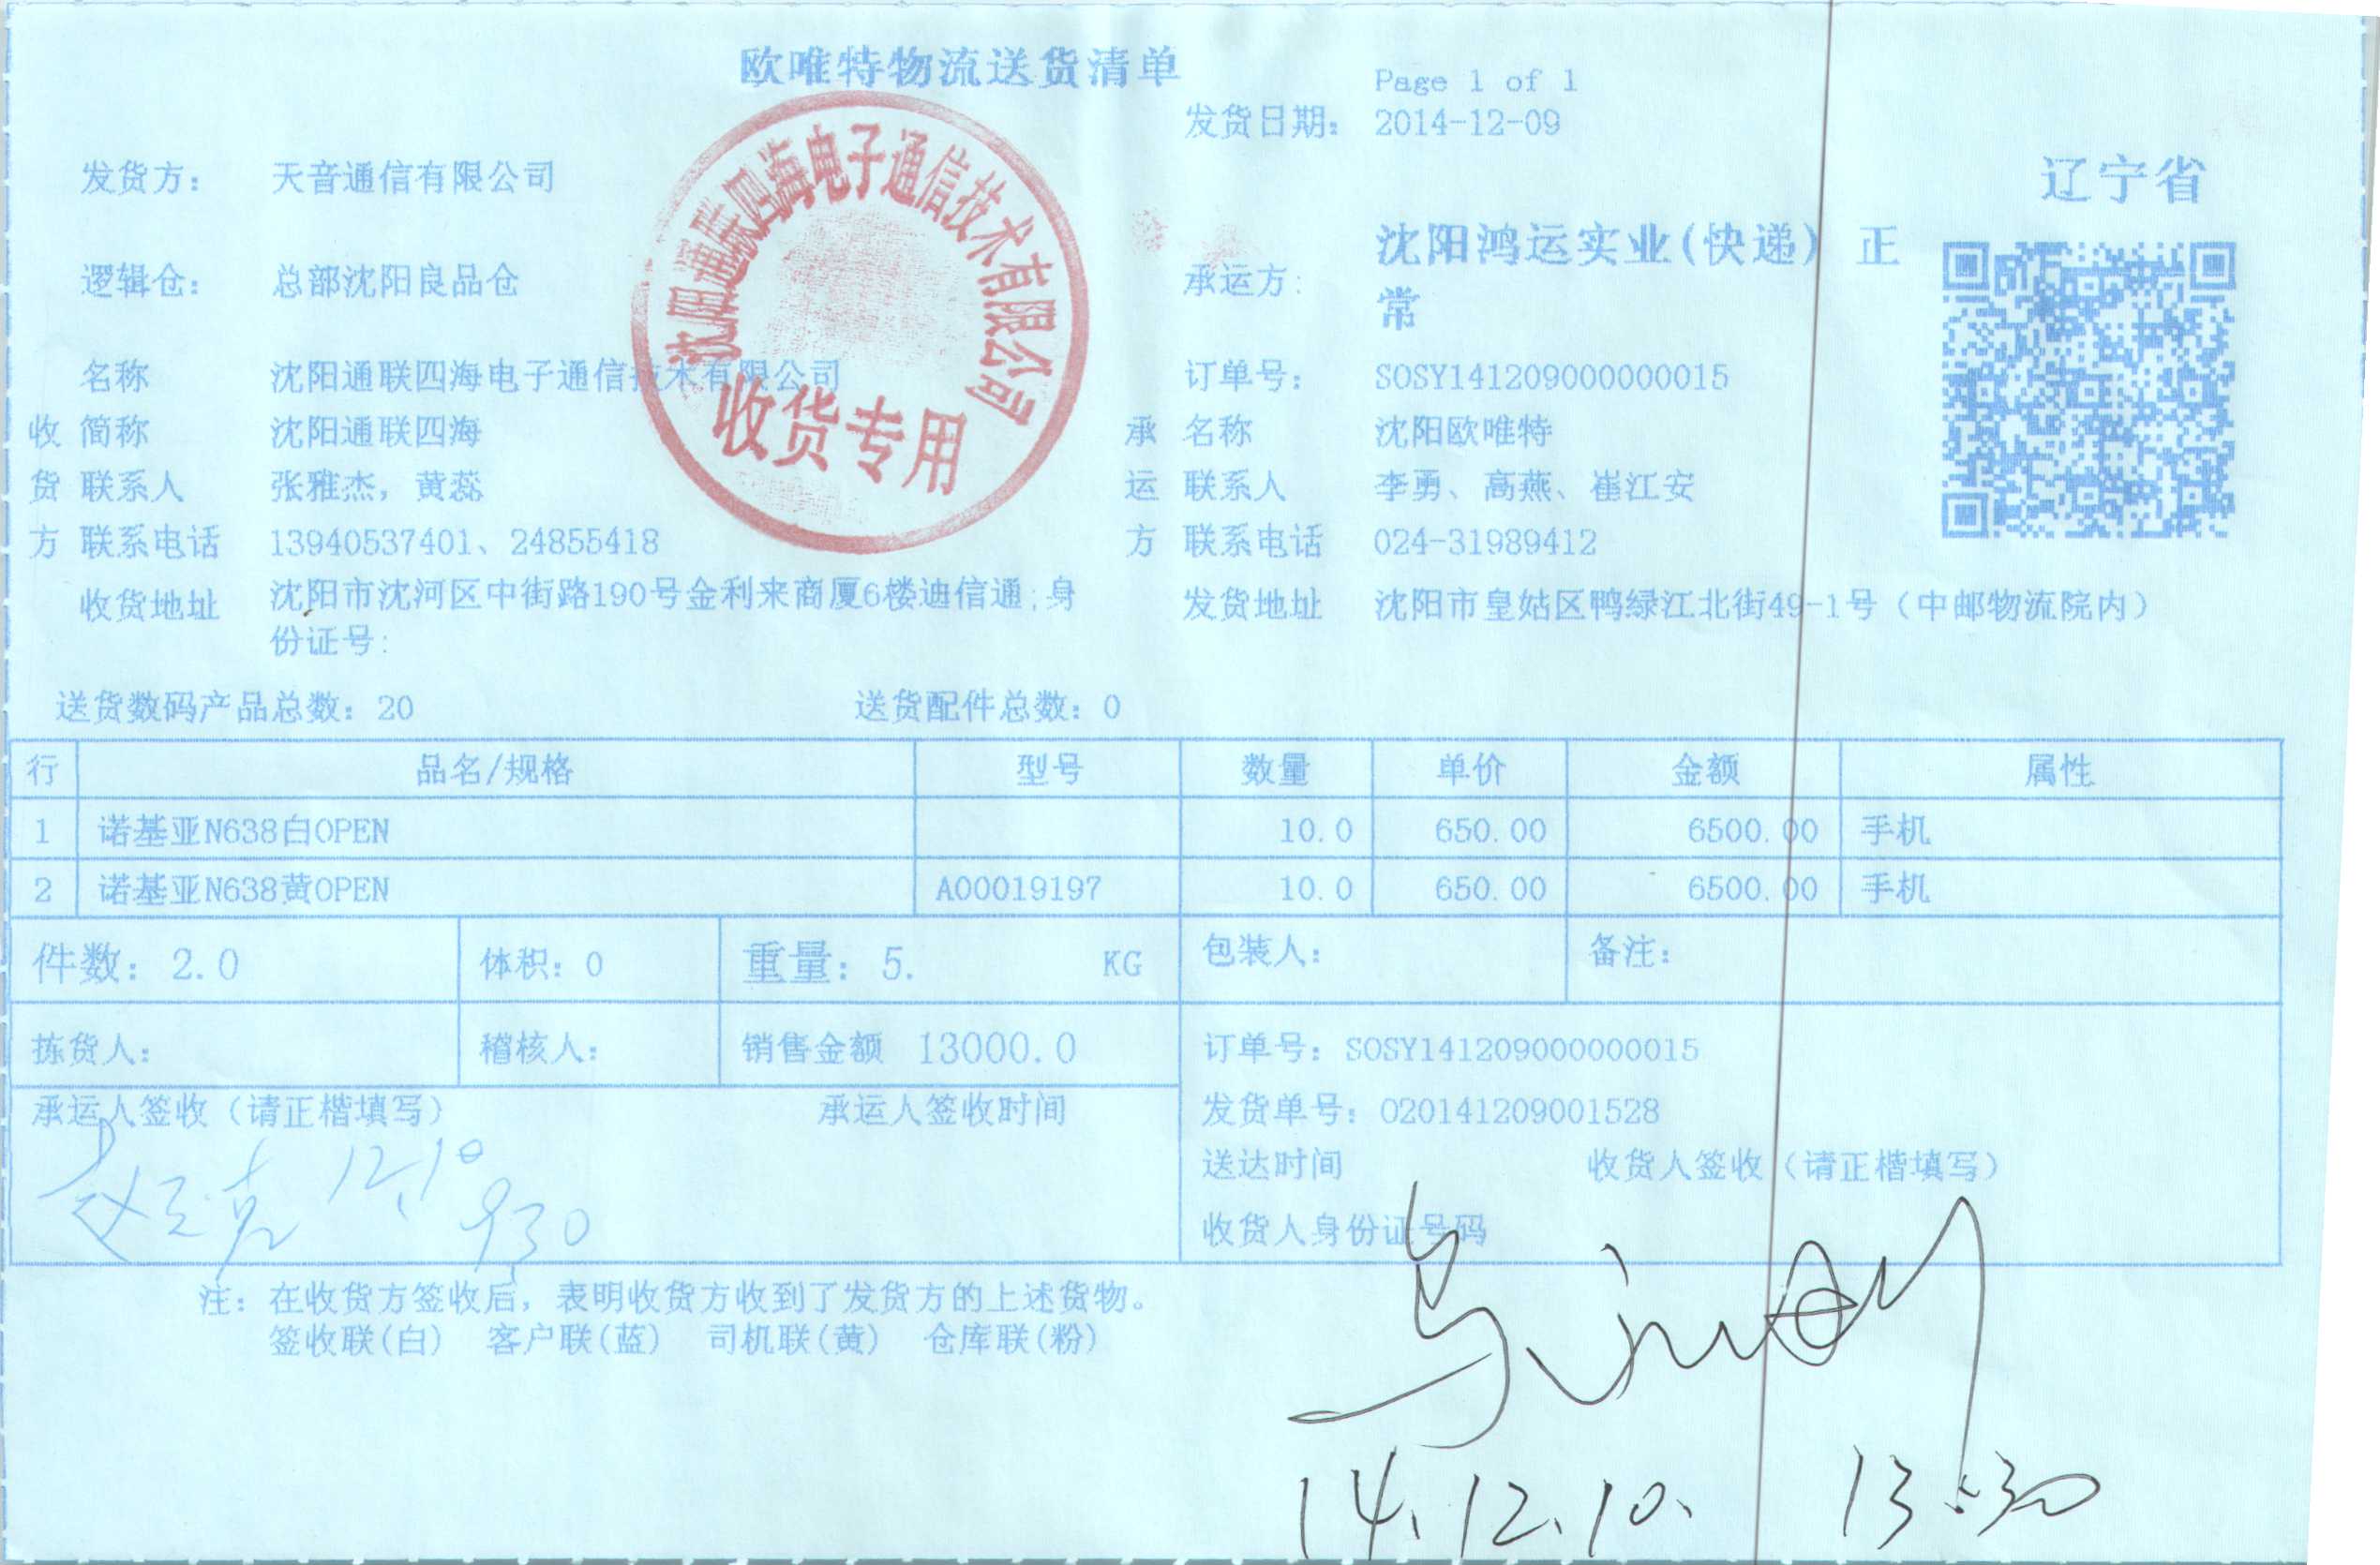 欧唯特物流送货清单
Page 1 of 1
发货日期: 2014-12-09
辽宁省
发货方: 天音通信有限公司
承运方: 沈阳鸿运实业(快递) 正
常
逻辑仓: 总部沈阳良品仓
名称 沈阳通联四海电子通信技术有限公司 订单号: SOSY141209000000015
收 简称 沈阳通联四海 承 名称 沈阳欧唯特
货 联系人 张雅杰, 黄蕊 运 联系人 李勇、高燕、崔江安
方 联系电话 13940537401、24855418 方 联系电话 024-31989412
收货地址 沈阳市沈河区中街路190号金利来商厦6楼迪信通;身
份证号:
发货地址 沈阳市皇姑区鸭绿江北街49-1号（中邮物流院内）
沈阳通联四海电子通信技术有限公司
收货专用
送货数码产品总数: 20 送货配件总数: 0
行 品名/规格 型号 数量 单价 金额 属性
1 诺基亚N638白OPEN 10.0 650.00 6500.00 手机
2 诺基亚N638黄OPEN A00019197 10.0 650.00 6500.00 手机
件数: 2.0 体积: 0 重量: 5. KG 包装人: 备注:
拣货人: 稽核人: 销售金额 13000.0 订单号: SOSY141209000000015
承运人签收（请正楷填写） 承运人签收时间 发货单号: O20141209001528
送达时间 收货人签收（请正楷填写）
12.10 930
收货人身份证号码
注: 在收货方签收后, 表明收货方收到了发货方的上述货物。
签收联(白) 客户联(蓝) 司机联(黄) 仓库联(粉)
14.12.10. 13:30